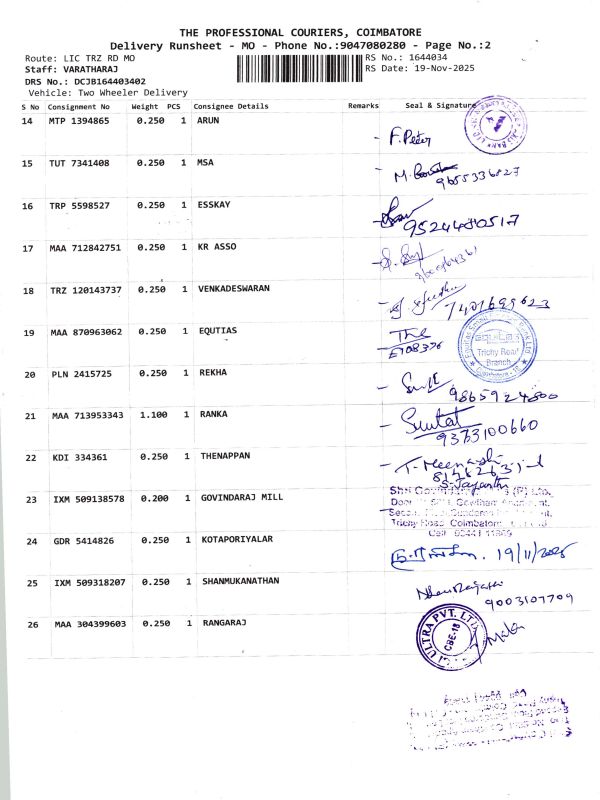 THE PROFESSIONAL COURIERS, COIMBATORE
Delivery Runsheet - MO - Phone No.:9047080280 - Page No.:2
Route: LIC TRZ RD MO RS No.: 1644034
Staff: VARATHARAJ RS Date: 19-Nov-2025
DRS No.: DCJB164403402
Vehicle: Two Wheeler Delivery
S No Consignment No Weight PCS Consignee Details Remarks Seal & Signature
14 MTP 1394865 0.250 1 ARUN
F. Peter
15 TUT 7341408 0.250 1 MSA
M.
9655336827
16 TRP 5598527 0.250 1 ESSKAY
9524480517
17 MAA 712842751 0.250 1 KR ASSO
18 TRZ 120143737 0.250 1 VENKADESWARAN
7401699623
19 MAA 870963062 0.250 1 EQUTIAS
E708376
equitas
Trichy Road
Branch
20 PLN 2415725 0.250 1 REKHA
9865924800
21 MAA 713953343 1.100 1 RANKA
9373100660
22 KDI 334361 0.250 1 THENAPPAN
T. Meenakshi
S. Jayanthi
23 IXM 509138578 0.200 1 GOVINDARAJ MILL
(P) Ltd.
Trichy Road Coimbatore
24 GDR 5414826 0.250 1 KOTAPORIYALAR
19/11/2025
25 IXM 509318207 0.250 1 SHANMUKANATHAN
9003107709
26 MAA 304399603 0.250 1 RANGARAJ
ULTRA PVT. LTD
CBE-18